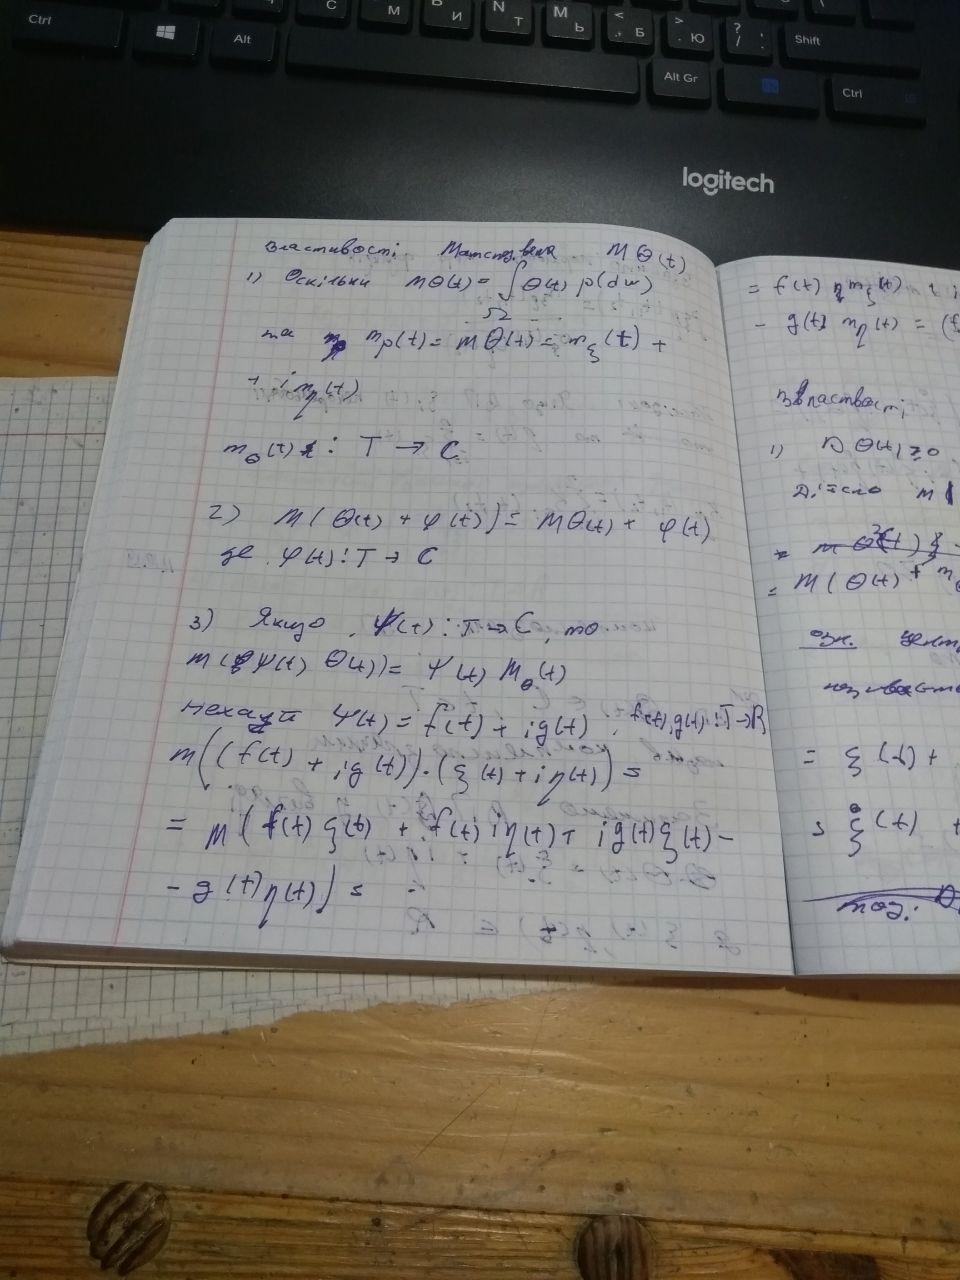 Ctrl
Alt
С
М
В И
N Т
М Ь
< , Б
> . Ю
? / .
Shift
Alt Gr
Ctrl
logitech
Властивості Матспд. вела M Θ(t)
1) Оскільки MΘ(t) = ∫ Θ(t) p(dω)
Ω
та m_ρ(t) = MΘ(t) = m_ξ(t) +
+ i m_η(t)
m_Θ(t) : T → C
2) M(Θ(t) + φ(t)) = MΘ(t) + φ(t)
де φ(t) : T → C
3) Якщо ψ(t) : T → C, то
M(ψ(t) Θ(t)) = ψ(t) M_Θ(t)
нехай ψ(t) = f(t) + ig(t), f(t), g(t) : T → R
M((f(t) + ig(t)) · (ξ(t) + iη(t)) =
= M(f(t) ξ(t) + f(t) iη(t) + ig(t) ξ(t) -
- g(t) η(t)) =
= f(t) m_ξ(t)
- g(t) m_η(t) = (f
Властвості
1) D Θ(t) ≥ 0
Дійсно M |
= M(Θ(t) + m_Θ
озн. Центр
називаєть
= ξ(t) +
= ξ(t) +
тоді: D